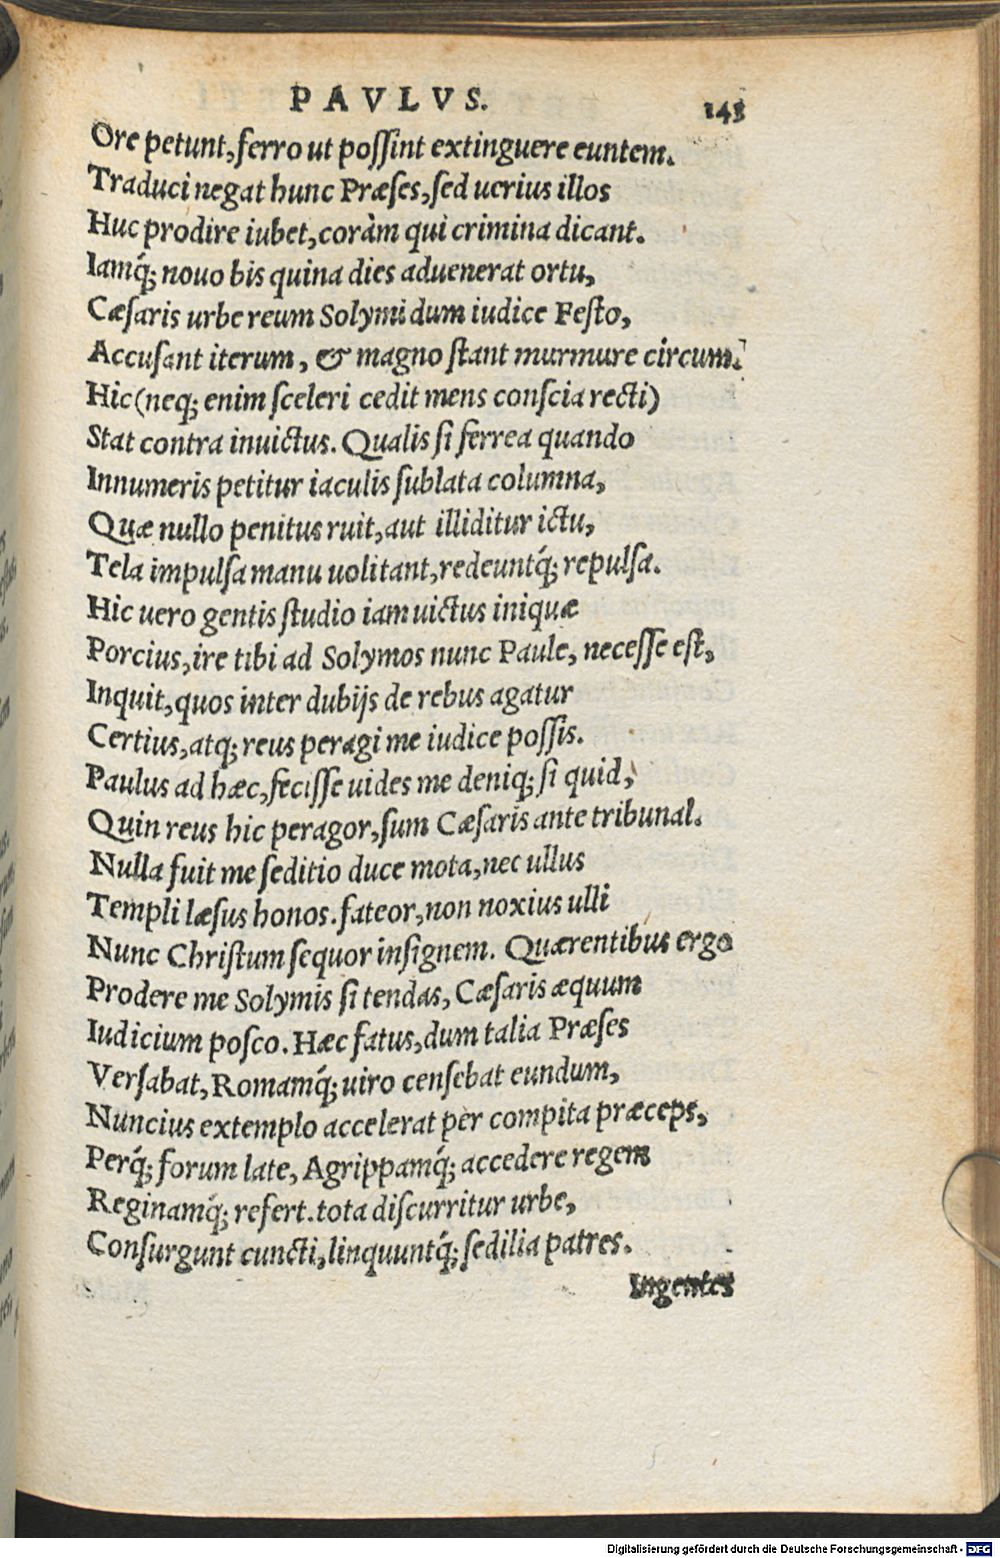 PAVLVS. 143
Ore petunt, ferro ut poſſint extinguere euntem.
Traduci negat hunc Præſes, ſed uerius illos
Huc prodire iubet, coràm qui crimina dicant.
Iamq́; nouo bis quina dies aduenerat ortu,
Cæſaris urbe reum Solymi dum iudice Feſto,
Accuſant iterum, & magno ſtant murmure circum.
Hic (neq; enim ſceleri cedit mens conſcia recti)
Stat contra inuictus. Qualis ſi ferrea quando
Innumeris petitur iaculis ſublata columna,
Quæ nullo penitus ruit, aut illiditur ictu,
Tela impulſa manu uolitant, redeuntq́; repulſa.
Hic uero gentis ſtudio iam uictus iniquæ
Porcius, ire tibi ad Solymos nunc Paule, neceſſe eſt,
Inquit, quos inter dubijs de rebus agatur
Certius, atq; reus peragi me iudice poſſis.
Paulus ad hæc, feciſſe uides me deniq; ſi quid,
Quin reus hic peragor, ſum Cæſaris ante tribunal.
Nulla fuit me ſeditio duce mota, nec ullus
Templi læſus honos. fateor, non noxius ulli
Nunc Chriſtum ſequor inſignem. Quærentibus ergo
Prodere me Solymis ſi tendas, Cæſaris æquum
Iudicium poſco. Hæc fatus, dum talia Præſes
Verſabat, Romamq́; uiro cenſebat eundum,
Nuncius extemplo accelerat pèr compita præceps,
Perq́; forum late, Agrippamq́; accedere regem
Reginamq́; refert. tota diſcurritur urbe,
Conſurgunt cuncti, linquuntq́; ſedilia patres.
Ingentes
Digitalisierung gefördert durch die Deutsche Forschungsgemeinschaft - DFG